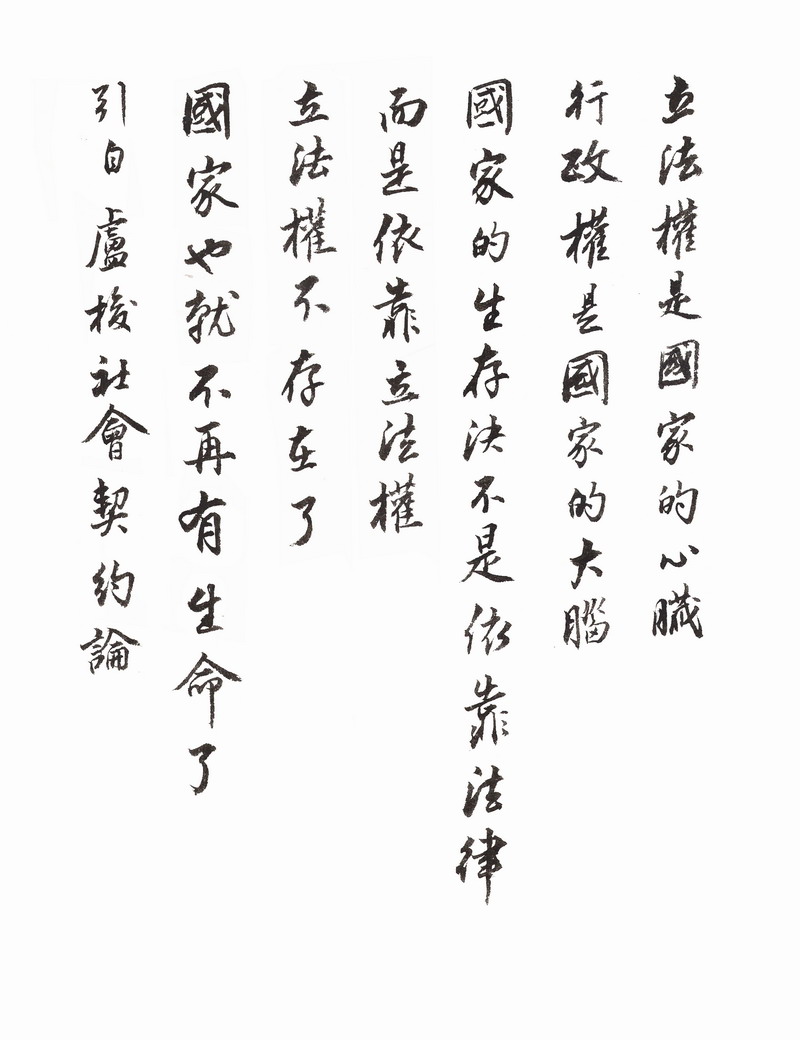 立法權是國家的心臟
行政權是國家的大腦
國家的生存決不是依靠法律
而是依靠立法權
立法權不存在了
國家也就不再有生命了
引自盧梭社會契約論